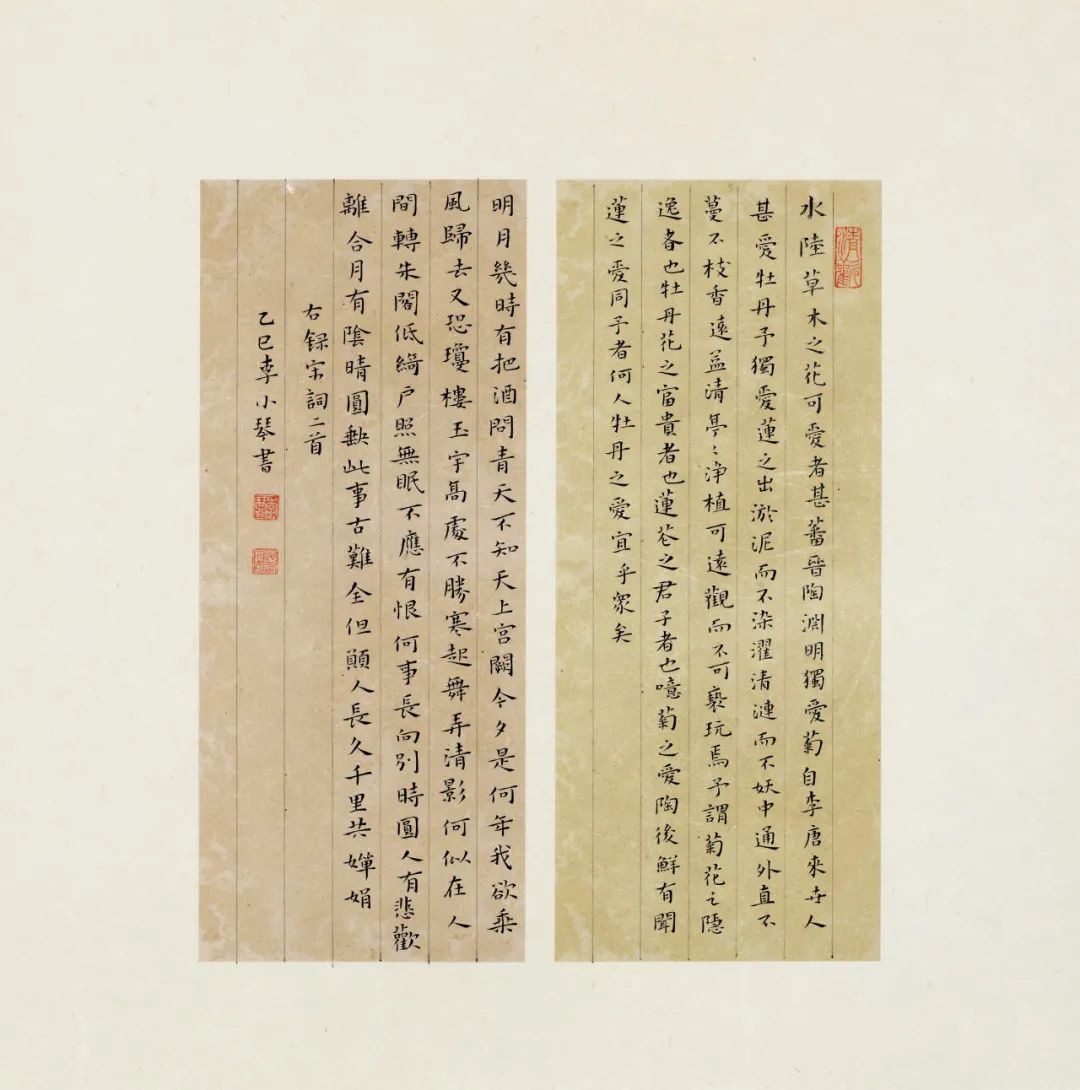 水陸草木之花可愛者甚蕃晉陶淵明獨愛菊自李唐來世人
甚愛牡丹予獨愛蓮之出淤泥而不染濯清漣而不妖中通外直不
蔓不枝香遠益清亭〻淨植可遠觀而不可褻玩焉予謂菊花之隱
逸者也牡丹花之富貴者也蓮花之君子者也噫菊之愛陶後鮮有聞
蓮之愛同予者何人牡丹之愛宜乎眾矣
明月幾時有把酒問青天不知天上宮闕今夕是何年我欲乘
風歸去又恐瓊樓玉宇高處不勝寒起舞弄清影何似在人
間轉朱閣低綺戶照無眠不應有恨何事長向別時圓人有悲歡
離合月有陰晴圓缺此事古難全但願人長久千里共嬋娟
右錄宋詞二首
乙巳李小琴書